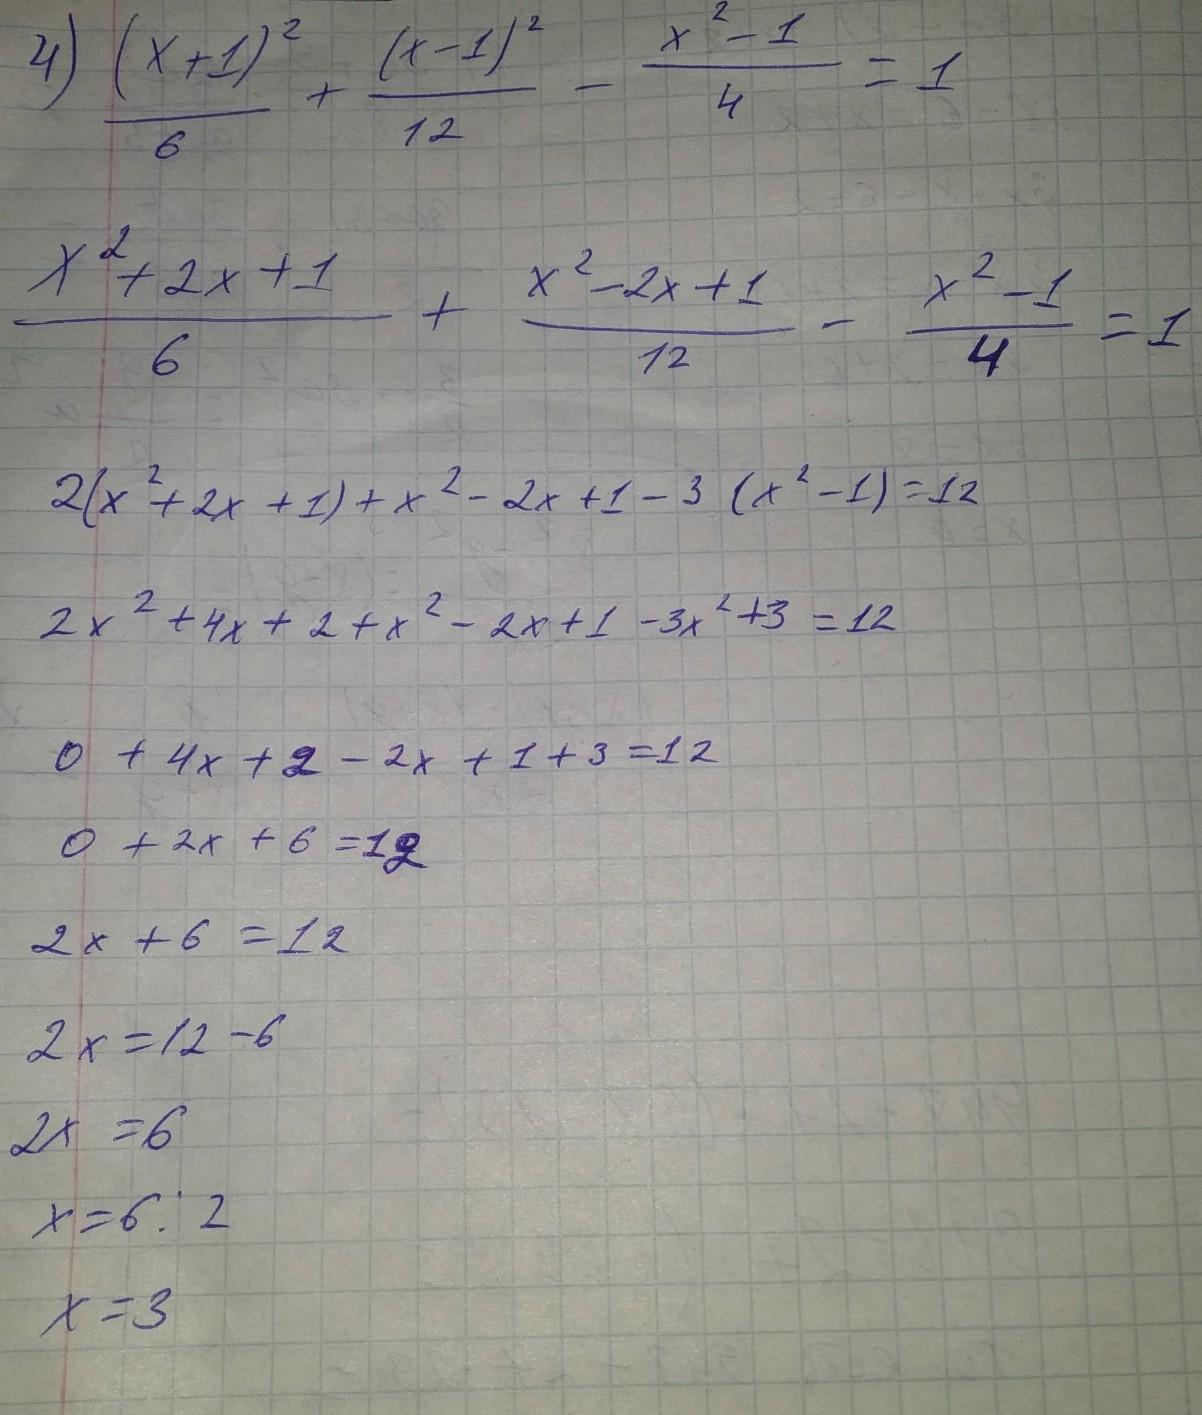 4) (x+1)²/6 + (x-1)²/12 - x²-1/4 = 1
x²+2x+1/6 + x²-2x+1/12 - x²-1/4 = 1
2(x²+2x+1)+x²-2x+1-3(x²-1)=12
2x²+4x+2+x²-2x+1-3x²+3=12
0+4x+2-2x+1+3=12
0+2x+6=12
2x+6=12
2x=12-6
2x=6
x=6:2
x=3